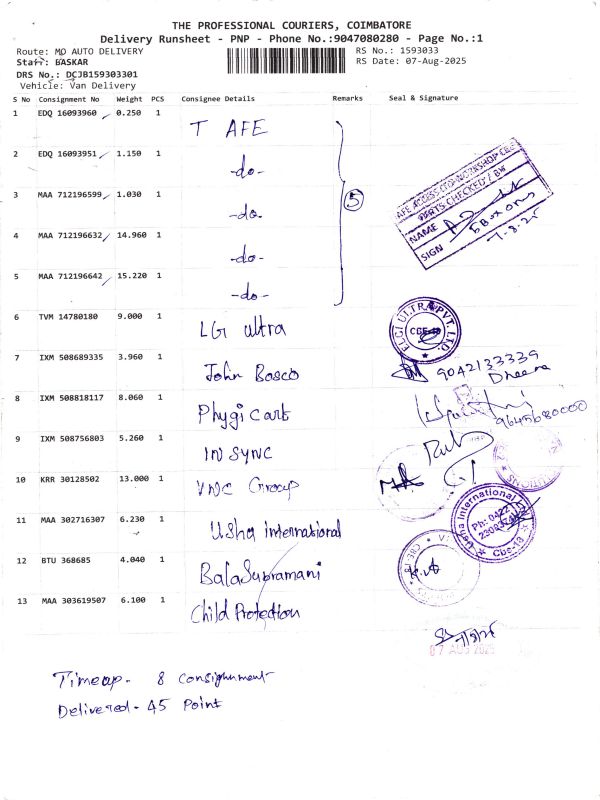 THE PROFESSIONAL COURIERS, COIMBATORE
Delivery Runsheet - PNP - Phone No.:9047080280 - Page No.:1
Route: MO AUTO DELIVERY
RS No.: 1593033
Staff: BASKAR
RS Date: 07-Aug-2025
DRS No.: DCJB159303301
Vehicle: Van Delivery
S No Consignment No Weight PCS Consignee Details Remarks Seal & Signature
1 EDQ 16093960 0.250 1 T AFE
2 EDQ 16093951 1.150 1 -do-
3 MAA 712196599 1.030 1 -do-
5
4 MAA 712196632 14.960 1 -do-
5 MAA 712196642 15.220 1 -do-
PARTS CHECKED / BW
NAME
SIGN
5 Box only
7.8.25
6 TVM 14780180 9.000 1 LG ultra
ELGI ULTRA PVT. LTD.
CBE-
7 IXM 508689335 3.960 1 John Bosco
9042133339
Dheena
8 IXM 508818117 8.060 1 Phygi Cart
9 IXM 508756803 5.260 1 IN SYNC
10 KRR 30128502 13.000 1 VNC Group
11 MAA 302716307 6.230 1 Usha international
Usha International
Ph: 0422
Cbe-18
12 BTU 368685 4.040 1 BalaSubramani
13 MAA 303619507 6.100 1 Child Protection
07 AUG 2025
Timeap - 8 Consignment
Delivered - 45 Point